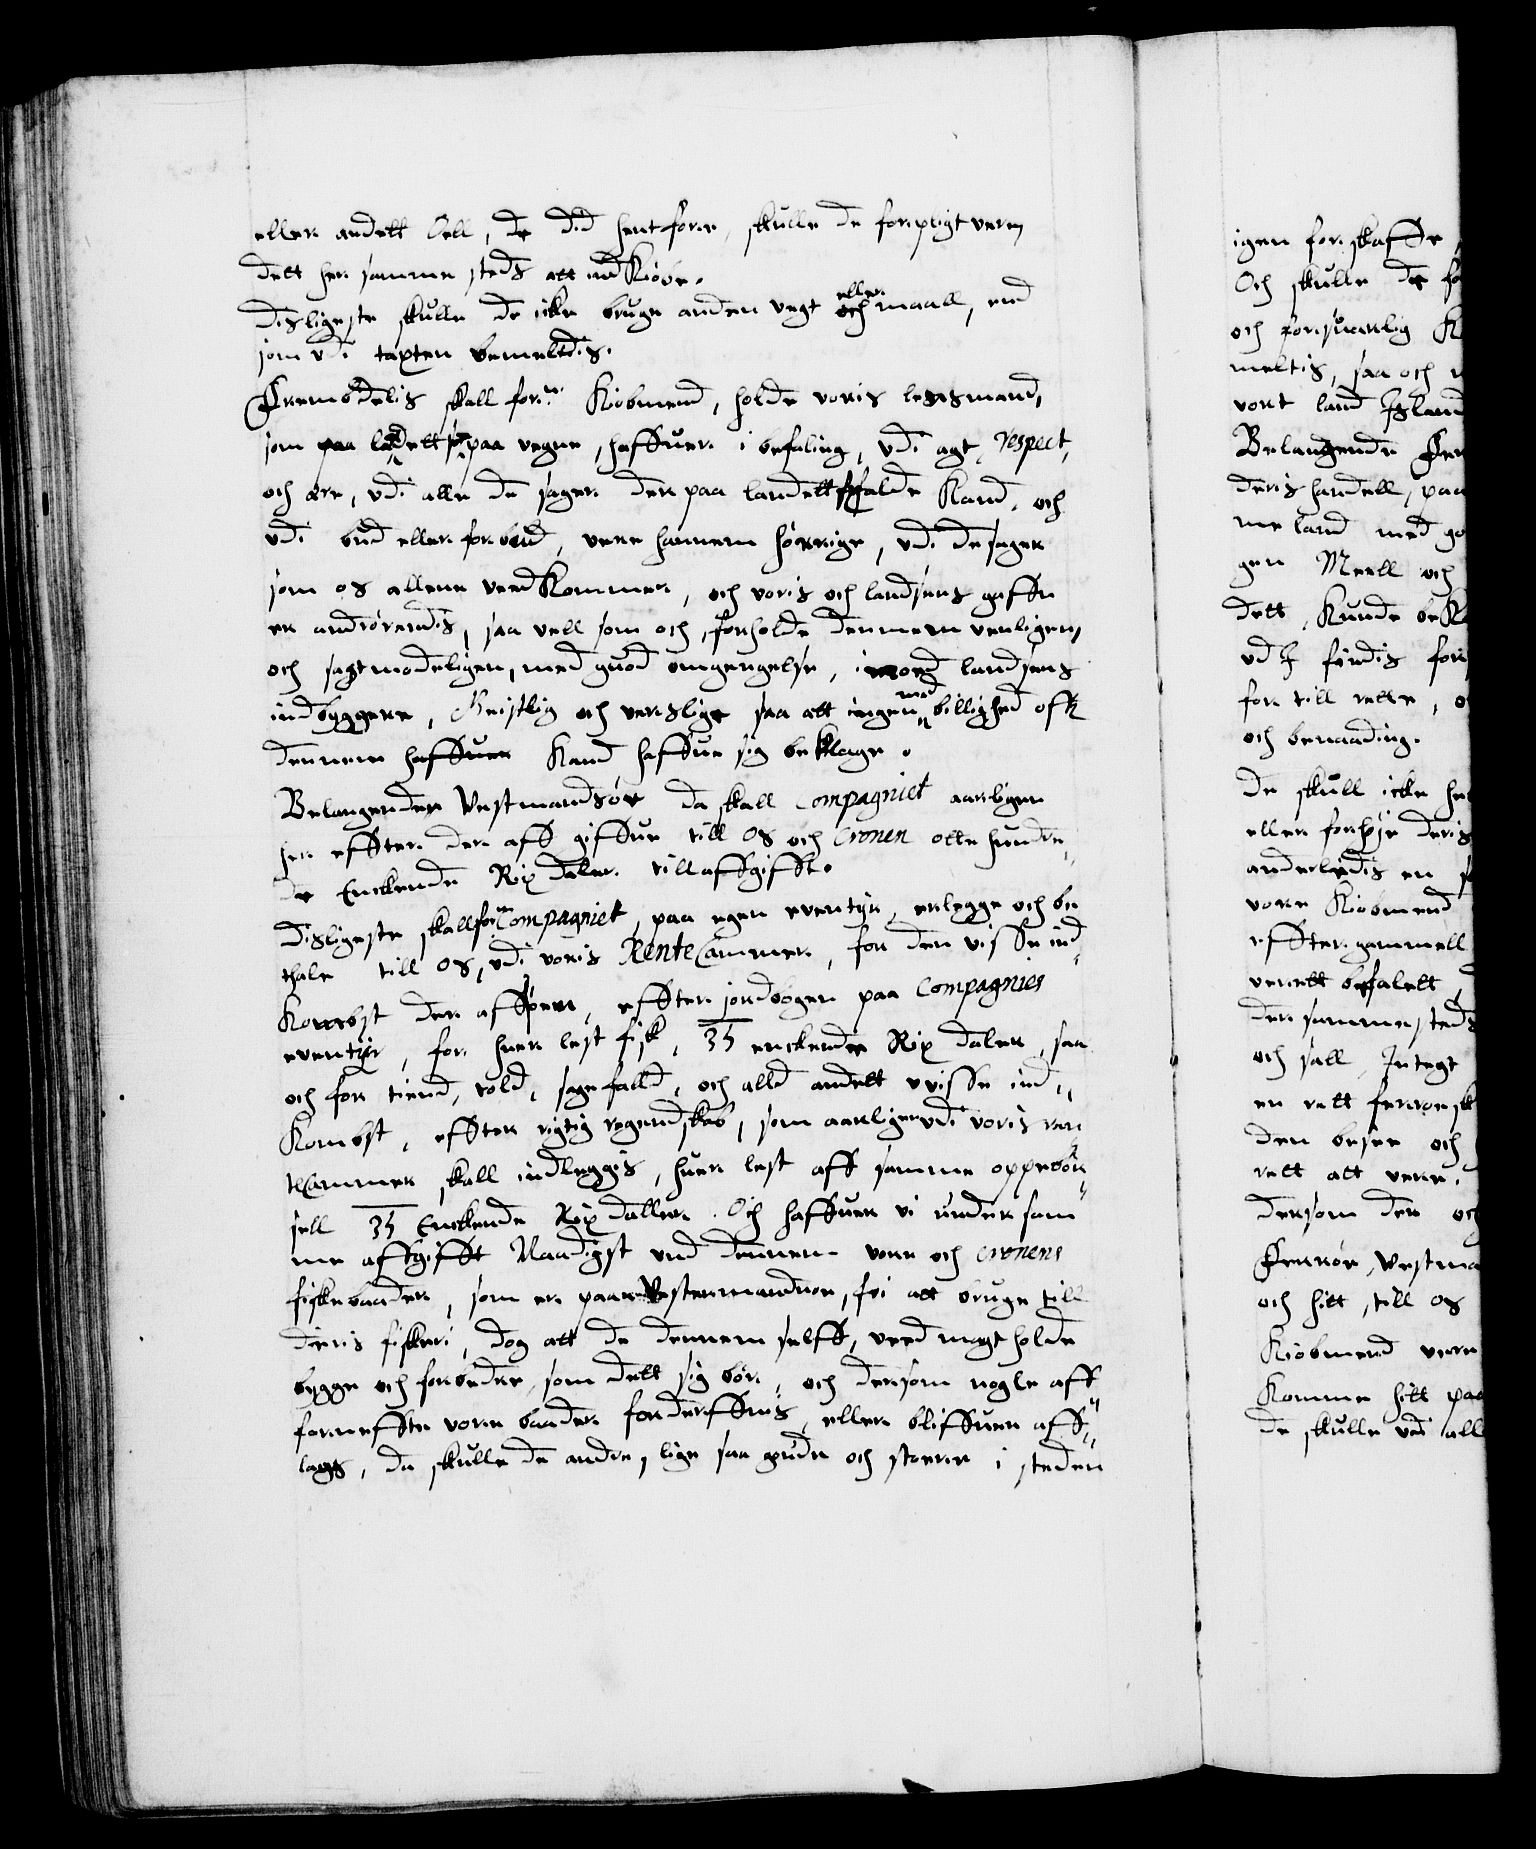 eller andett Oell, de did hentføre, skulle de forpligt vere,
dett her samme steds att indkiøbe.
Disligeste skulle de icke bruge anden vegt eller maall, end
som vdi taxten bemeltdis.
Fremdelis skall forne Kiøbmend, holde voris lensmand,
som paa landetts paa vegne, haffuer i befaling, vdi agt, respect,
och ære, vdi alle de sager der paa landett falde kand, och
vdi bud eller forbud, vere hannem hørrige, vdi de sager
som os allene vedkommer, och voris och landsens gaffn
er andrørendis, saa vell som och, forholde dennem venligen,
och sagtmodeligen, med guod omgengelse, imod landsens
indbyggere, Geistlig och verslige saa att ingen med billighed offr
dennem haffuer kand haffue sig beklage.
Belangendes Vestmandsøe da skall Compagniet aarligen
her effter der aff giffue till os och Cronen otte hundre,,
de Enckende Rix daler till affgifft.
Disligeste skall forne Compagniet, paa egen eventyr, erlegge och be
thale till os, vdi voris Rente Cammer, for den visse ind,,
Kombst der aff, effter jordbogen paa Compagnies
eventyr, for huer lest fisk, 35 enckende Rix daler, saa
och for tiend, told, sagefalld, och alld andett vvisse ind,,
Kombst, effter rigtig regendskab, som aarligen vdi voris ren
teCammer skall indleggis, huer lest aff samme oppebør,,
sell 35 Enckende Rix daller. Och haffuer vi under sam,,
me affgifft Naadigst und dennem vore och Cronens
fiskebaader, som er paa Vestermandøe, fri att bruge till
deris fiskeri, dog att de dennem selff, ved magt holde
bygge och forbedre, som dett sig bør, och dersom nogle aff
forneffte vore baader forderffuis, eller bliffuer aff,,
lagg, da skulle de andre, lige saa gode och stoere i steden
igen forskaffe,
Och skulle de
och forsuarlig
meltis, saa och
vort land Island
Belangende
deris handell, paa
me land med
gen Meell och
dett, kunde
vdj findis for
for till rette,
och benaading.
De skull icke
eller forhøje deris
anderledis en
vore Kiøbmend
effter gammell
verett befalett,
der sammesteds
och sall Integt
en rett
den besee och
rett att vere.
Dersom der och
Ferrøe, Vestma
och hitt, till os
Kiøbmend vere
Komme hitt paa
de skulle vdi all